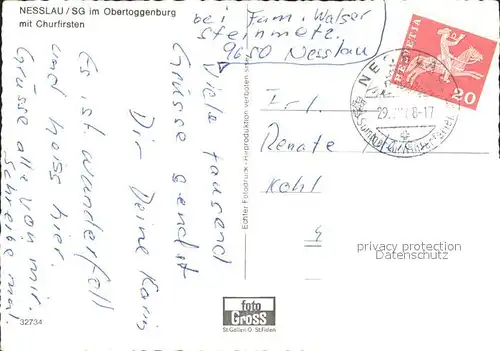 NESSLAU/SG im Obertoggenburg
mit Churfirsten
bei Fam. Walser
Steinmetz.
9650 Nesslau
Viele tausend
Grüsse sendet
Dir Deine Karin
Es ist wunderfoll
und heiss hier.
Grüsse alle von mir.
Schreibe mal.
Echter Fotodruck - Reproduktion verboten
HELVETIA
20
29.
8-17
Frl.
Renate
Kohl
privacy protection
AnsichtskartenVersand.com
foto
Gross
St.Gallen O St.Fiden
32734